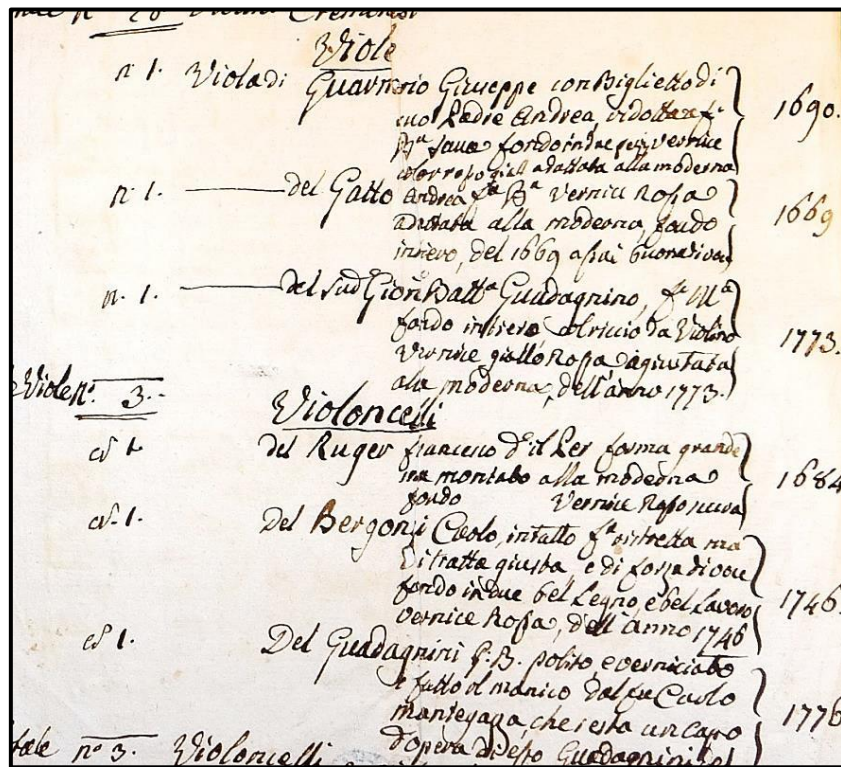 n° 28 Violini Cremonesi
Viole
n. 1. Viola di Guarnerio Giuseppe con Biglietto di
suo Padre Andrea, ridotta
fondo in due pezzi, vernice
adattata alla moderna 1690.
n. 1. del Gatto Andrea fª Bª Vernice Rossa
adattata alla moderna, fondo
intiero, del 1669 assai buona di voce 1669
n. 1. del sud Gion Battª Guadagnino, fª Mª
fondo intiero col riccio da Violino
Vernice giallo Rossa, agiustata
ala moderna, dell'anno 1773. 1773.
Viole N°. 3.
Violoncelli
n 1. del Ruger francesco d.º il Per forma grande
ma montato alla moderna
fondo Vernice 1684
n. 1. Del Bergonzi Carlo, intatto fª ristretta ma
di tratta giusta e di forza di voce
fondo in due bel Legno, e bel Lavoro
vernice Rossa, dell'anno 1746 1746.
n 1. Del Guadagnini G. B. polito, e verniciato
e fatto il manico dal fu Carlo
mantegaza, che resta un Capo
d'opera di esso Guadagnini 1776
n° 3. Violoncelli